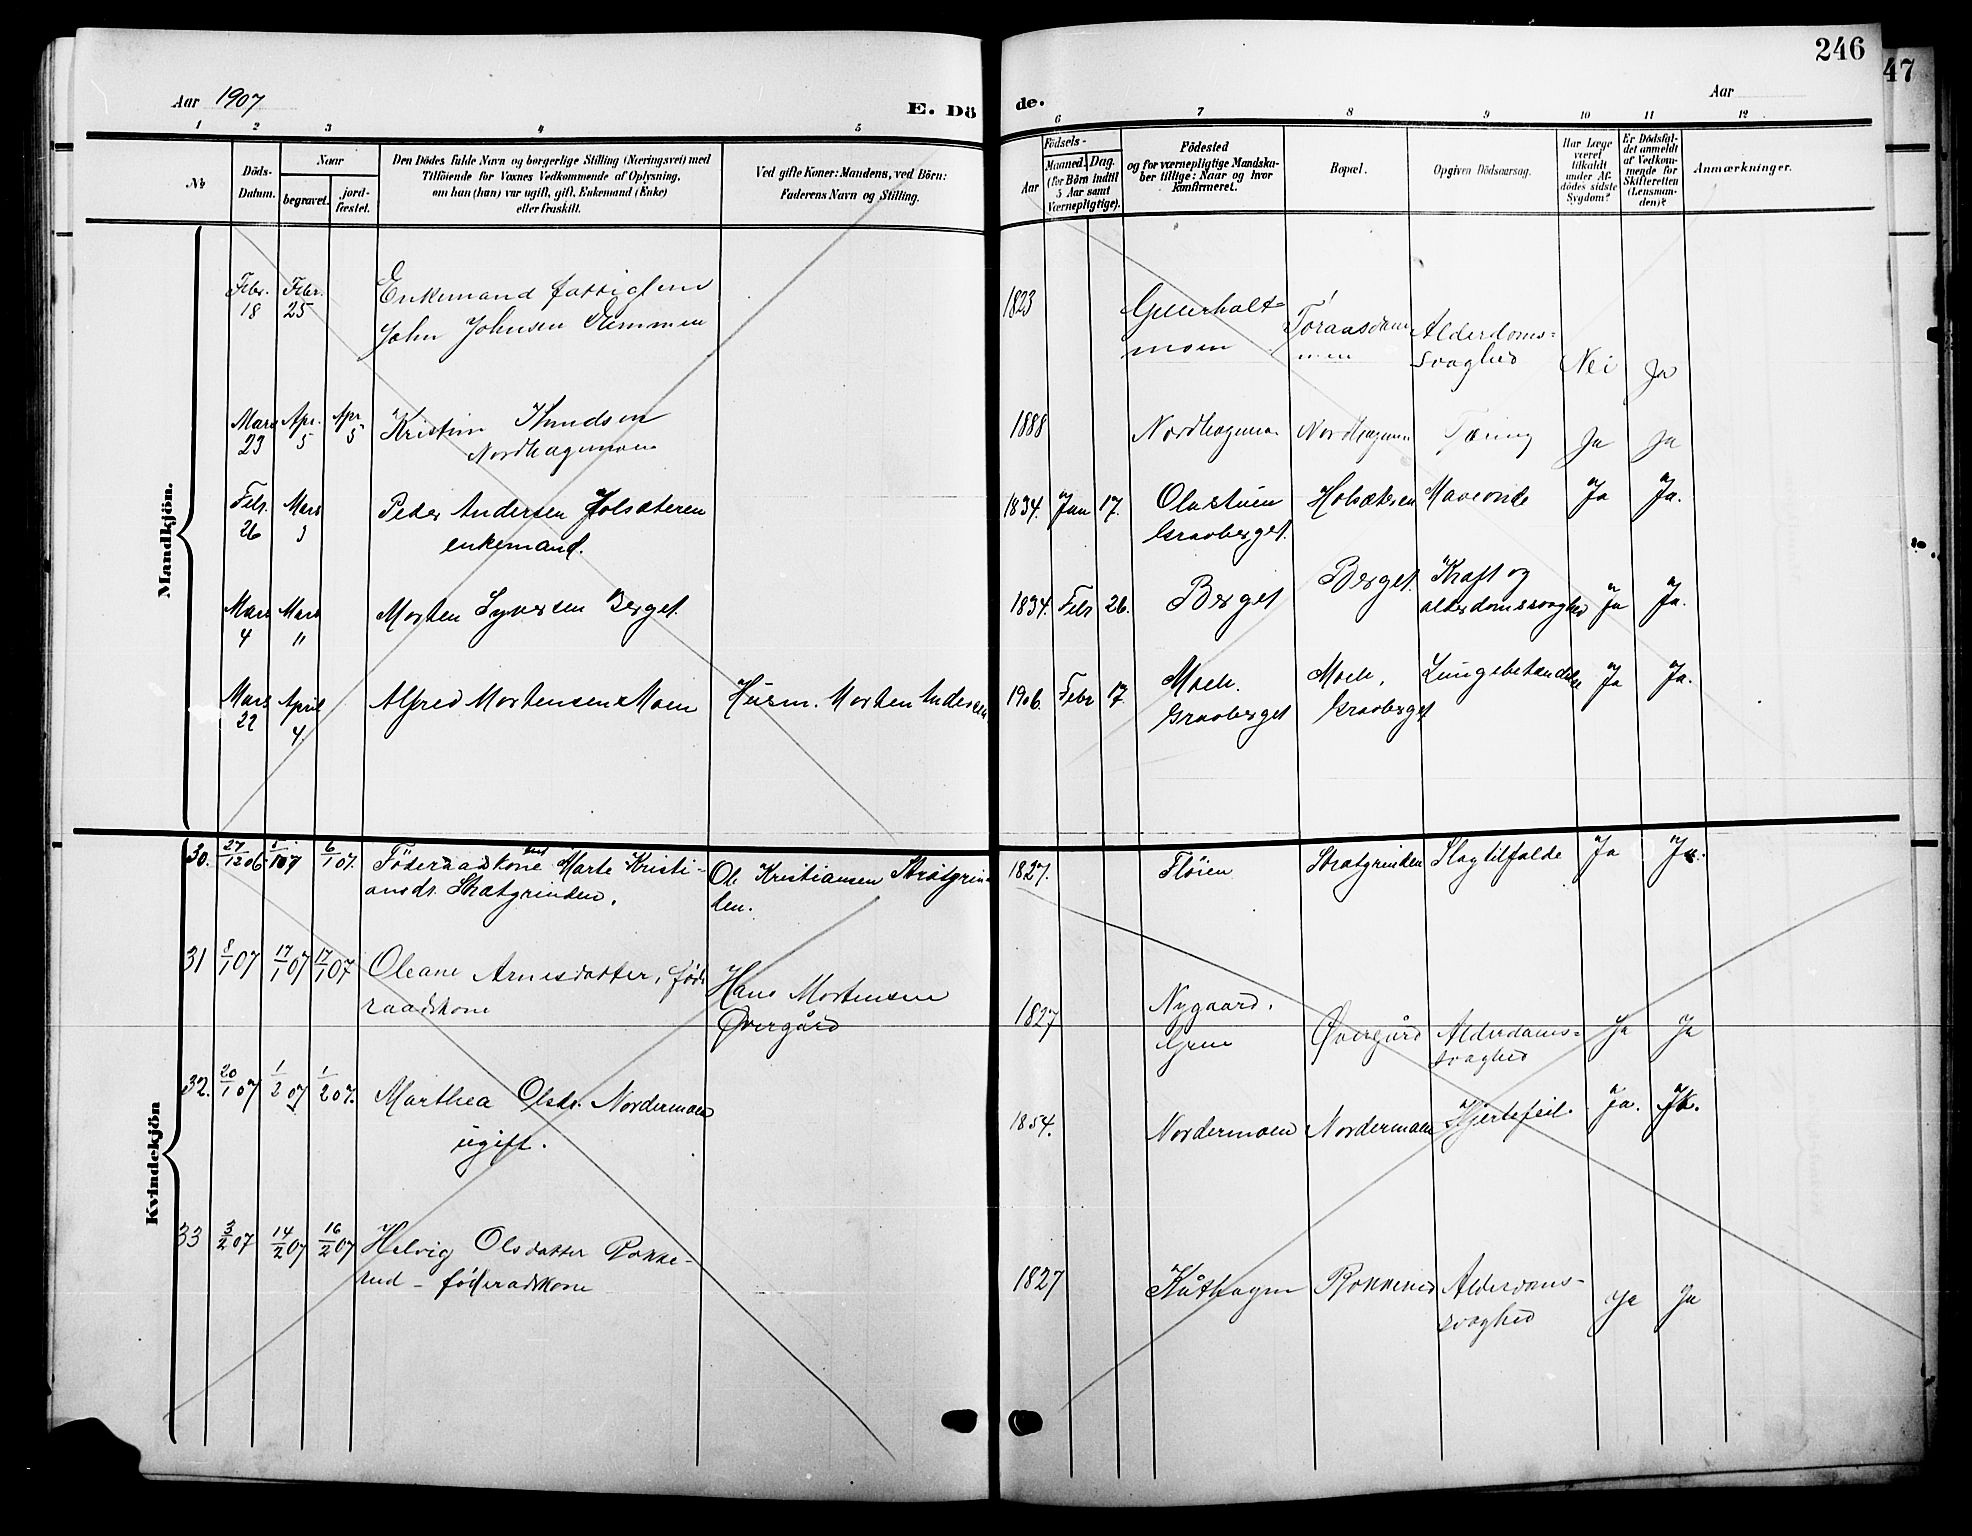 246
47
Aar 1907
E. Dö
de.
Aar
1 2 3 4 5 6 7 8 9 10 11 12
No
Döds-
Datum.
Naar
begravet.
jord-
fæstet.
Den Dödes fulde Navn og borgerlige Stilling (Næringsvei) med
Tilföiende for Voxnes Vedkommende af Oplysning,
om han (hun) var ugift, gift, Enkemand (Enke)
eller fraskilt.
Ved gifte Koner: Mandens, ved Börn:
Faderens Navn og Stilling.
Födsels-
Aar
Maaned. Dag.
(for Börn indtil
5 Aar samt
Værnepligtige).
Födested
og for værnepligtige Mandska-
ber tillige: Naar og hvor
konfirmeret.
Bopæl.
Opgiven Dödsaarsag.
Har Læge
været
tilkaldt
under Af-
dödes sidste
Sygdom?
Er Dödsfal-
det anmeldt
af Vedkom-
mende for
Skifteretten
(Lensman-
den)?
Anmærkninger.
Mandkjön.
Febr. 18
Febr. 25
Enkemand fattiglem
John Johnsen
1823
moen
Alderdoms=
svaghed
Nei
Ja
Mars 23
Apr. 5
Apr. 5
Kristian Knudsen
Nordhagamoen
1888
Tæring
Ja
Ja
Febr. 26
Mars 3
Peder Andersen Holsæteren
enkemand.
1834. Jan 17.
Olastuen
Gravberget.
Holsæteren
Maveonde
Ja
Ja.
Mars 4
Mars 11
Morten Syversen Berget.
1834. Febr 26.
Berget
Berget.
Kræft og
alderdomssvaghed
Ja
Ja.
Mars 22
April 4.
Alfred Mortensen Moen
Husm. Morten Andersen
1906. Febr 17.
Moen.
Gravberget
Moen,
Gravberget
Lungebetændelse
Ja
Ja.
Kvindekjön
30.
27/12 06
6/1 07.
Föderaadskone Marte Kristi-
ansdt. Skatgrinden.
Ole Kristiansen Skatgrin-
den.
1827.
Fløien
Skatgrinden
Slagtilfælde
Ja
Ja.
31
8/1 07
17/1 07
17/1 07
Oleane Arnesdatter, føde
raadskone
Hans Mortensen
Øvergård
1827
Nygaard,
Grue
Øvergård
Alderdoms=
svaghed
Ja
Ja
32.
20/1 07
1/2 07
1/2 07.
Marthea Olsdr. Nordermoen
ugift.
1854.
Nordermoen
Nordermoen
Hjertefeil.
Ja.
Ja.
33
3/2 07
14/2 07
16/2 07
Helvig Olsdatter Rokke-
rud - føderadskone
1827
Rokkerud
Alderdoms-
svaghed
Ja
Ja